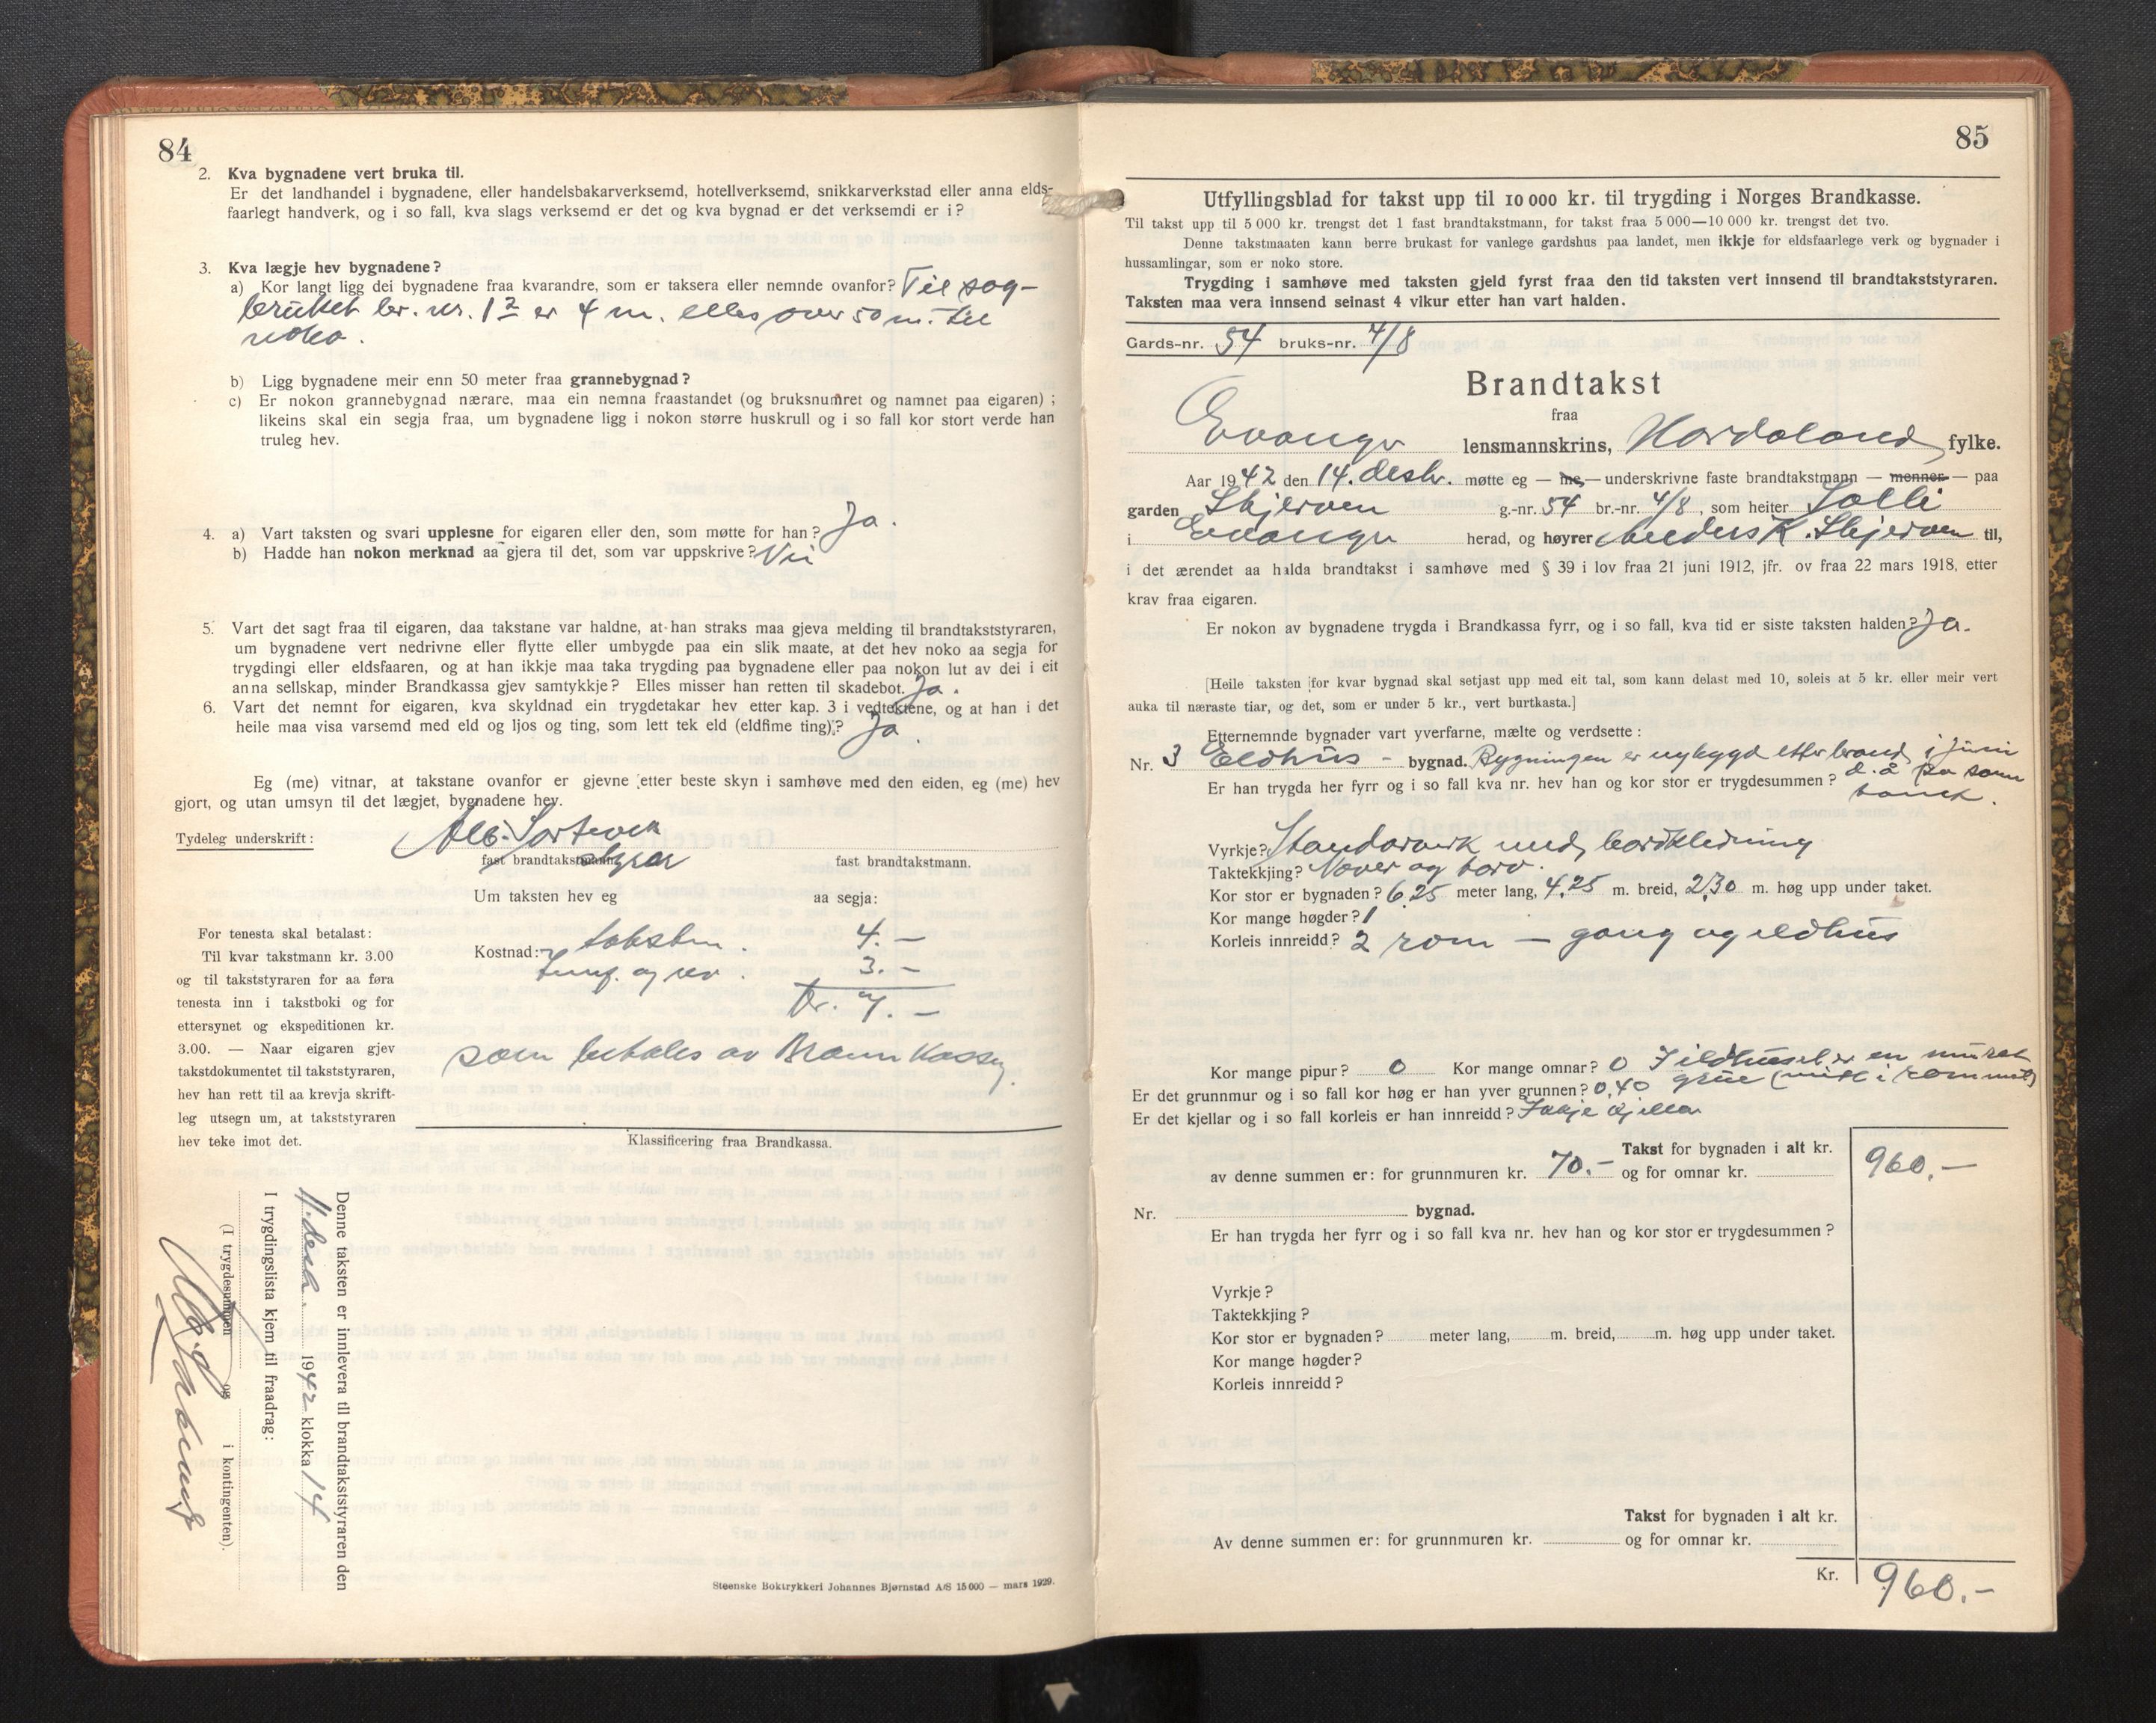 84
2. Kva bygnadene vert bruka til.
Er det landhandel i bygnadene, eller handelsbakarverksemd, hotellverksemd, snikkarverkstad eller anna elds-
faarlegt handverk, og i so fall, kva slags verksemd er det og kva bygnad er det verksemdi er i?
3. Kva lægje hev bygnadene?
a) Kor langt ligg dei bygnadene fraa kvarandre, som er taksera eller nemnde ovanfor? Til sag-
bruket br. nr. 12 er 4 m. elles over 50 m. til
noko.
b) Ligg bygnadene meir enn 50 meter fraa grannebygnad?
c) Er nokon grannebygnad nærare, maa ein nemna fraastandet (og bruksnumret og namnet paa eigaren);
likeins skal ein segja fraa, um bygnadene ligg i nokon større huskrull og i so fall kor stort verde han
truleg hev.
4. a) Vart taksten og svari upplesne for eigaren eller den, som møtte for han? Ja.
b) Hadde han nokon merknad aa gjera til det, som var uppskrive? Nei
5. Vart det sagt fraa til eigaren, daa takstane var haldne, at han straks maa gjeva melding til brandtakststyraren,
um bygnadene vert nedrivne eller flytte eller umbygde paa ein slik maate, at det hev noko aa segja for
trygdingi eller eldsfaaren, og at han ikkje maa taka trygding paa bygnadene eller paa nokon lut av dei i eit
anna sellskap, minder Brandkassa gjev samtykkje? Elles misser han retten til skadebot. Ja.
6. Vart det nemnt for eigaren, kva skyldnad ein trygdetakar hev etter kap. 3 i vedtektene, og at han i det
heile maa visa varsemd med eld og ljos og ting, som lett tek eld (eldfime ting)? Ja
Eg (me) vitnar, at takstane ovanfor er gjevne etter beste skyn i samhøve med den eiden, eg (me) hev
gjort, og utan umsyn til det lægjet, bygnadene hev.
Tydeleg underskrift:
fast brandtakstmann. fast brandtakstmann.
Um taksten hev eg aa segja:
For tenesta skal betalast:
Til kvar takstmann kr. 3.00
og til takststyraren for aa føra
tenesta inn i takstboki og for
ettersynet og ekspeditionen kr.
3.00. — Naar eigaren gjev
takstdokumentet til takststyraren,
hev han rett til aa krevja skrift-
leg utsegn um, at takststyraren
hev teke imot det.
Kostnad: taksten. 4.—
3.—
kr. 7.—
som betales av Brannkassen.
Klassificering fraa Brandkassa.
Denne taksten er innlevera til brandtakststyraren den
1942 klokka 14
I trygdingslista kjem til fraadrag:
(I trygdesummen og i kontingenten).
Steenske Boktrykkeri Johannes Bjørnstad A/S 15 000 — mars 1929.
85
Utfyllingsblad for takst upp til 10 000 kr. til trygding i Norges Brandkasse.
Til takst upp til 5 000 kr. trengst det 1 fast brandtakstmann, for takst fraa 5 000—10 000 kr. trengst det tvo.
Denne takstmaaten kann berre brukast for vanlege gardshus paa landet, men ikkje for eldsfaarlege verk og bygnader i
hussamlingar, som er noko store.
Trygding i samhøve med taksten gjeld fyrst fraa den tid taksten vert innsend til brandtakststyraren.
Taksten maa vera innsend seinast 4 vikur etter han vart halden.
Gards-nr. 54 bruks-nr. 4/8
Brandtakst
fraa
Evanger lensmannskrins, Hordaland fylke.
Aar 1942 den 14. desbr. møtte eg — me, — underskrivne faste brandtakstmann — menner — paa
garden Skjerven g.-nr. 54 br.-nr. 4/8, som heiter Solli
i Evanger herad, og høyrer Anders K. Skjerven til,
i det ærendet aa halda brandtakst i samhøve med § 39 i lov fraa 21 juni 1912, jfr. ov fraa 22 mars 1918, etter
krav fraa eigaren.
Er nokon av bygnadene trygda i Brandkassa fyrr, og i so fall, kva tid er siste taksten halden? Ja.
[Heile taksten for kvar bygnad skal setjast upp med eit tal, som kann delast med 10, soleis at 5 kr. eller meir vert
auka til næraste tiar, og det, som er under 5 kr., vert burtkasta.]
Etternemnde bygnader vart yverfarne, mælte og verdsette:
Nr. 3 Eldhus - bygnad. Bygningen er nybygd etter brand i juni
d. å. på samme
tomt.
Er han trygda her fyrr og i so fall kva nr. hev han og kor stor er trygdesummen?
Vyrkje? Standarverk med bordkledning
Taktekkjing? Never og torv.
Kor stor er bygnaden? 6,25 meter lang, 4,25 m. breid, 2,30 m. høg upp under taket.
Kor mange høgder? 1
Korleis innreidd? 2 rom — gang og eldhus
Kor mange pipur? 0 Kor mange omnar? 0 I eldhuset er en muret
Er det grunnmur og i so fall kor høg er han yver grunnen? 0,40 grue (midt i rommet)
Er det kjellar og i so fall korleis er han innreidd? Ikkje kjellar
Takst for bygnaden i alt kr. 960.—
av denne summen er: for grunnmuren kr. 70.— og for omnar kr.
Nr. bygnad.
Er han trygda her fyrr og i so fall kva nr. hev han og kor stor er trygdesummen?
Vyrkje?
Taktekkjing?
Kor stor er bygnaden? meter lang, m. breid, m. høg upp under taket.
Kor mange høgder?
Korleis innreidd?
Takst for bygnaden i alt kr.
Av denne summen er: for grunnmuren kr. og for omnar kr.
Kr. 960.—